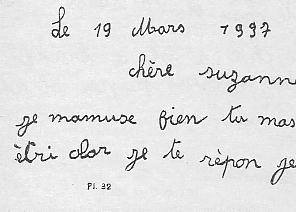 Le 19 Mars 1997
chère suzann
je mamuse bien tu mas
ètri olor je te rèpon je
Pl. 32